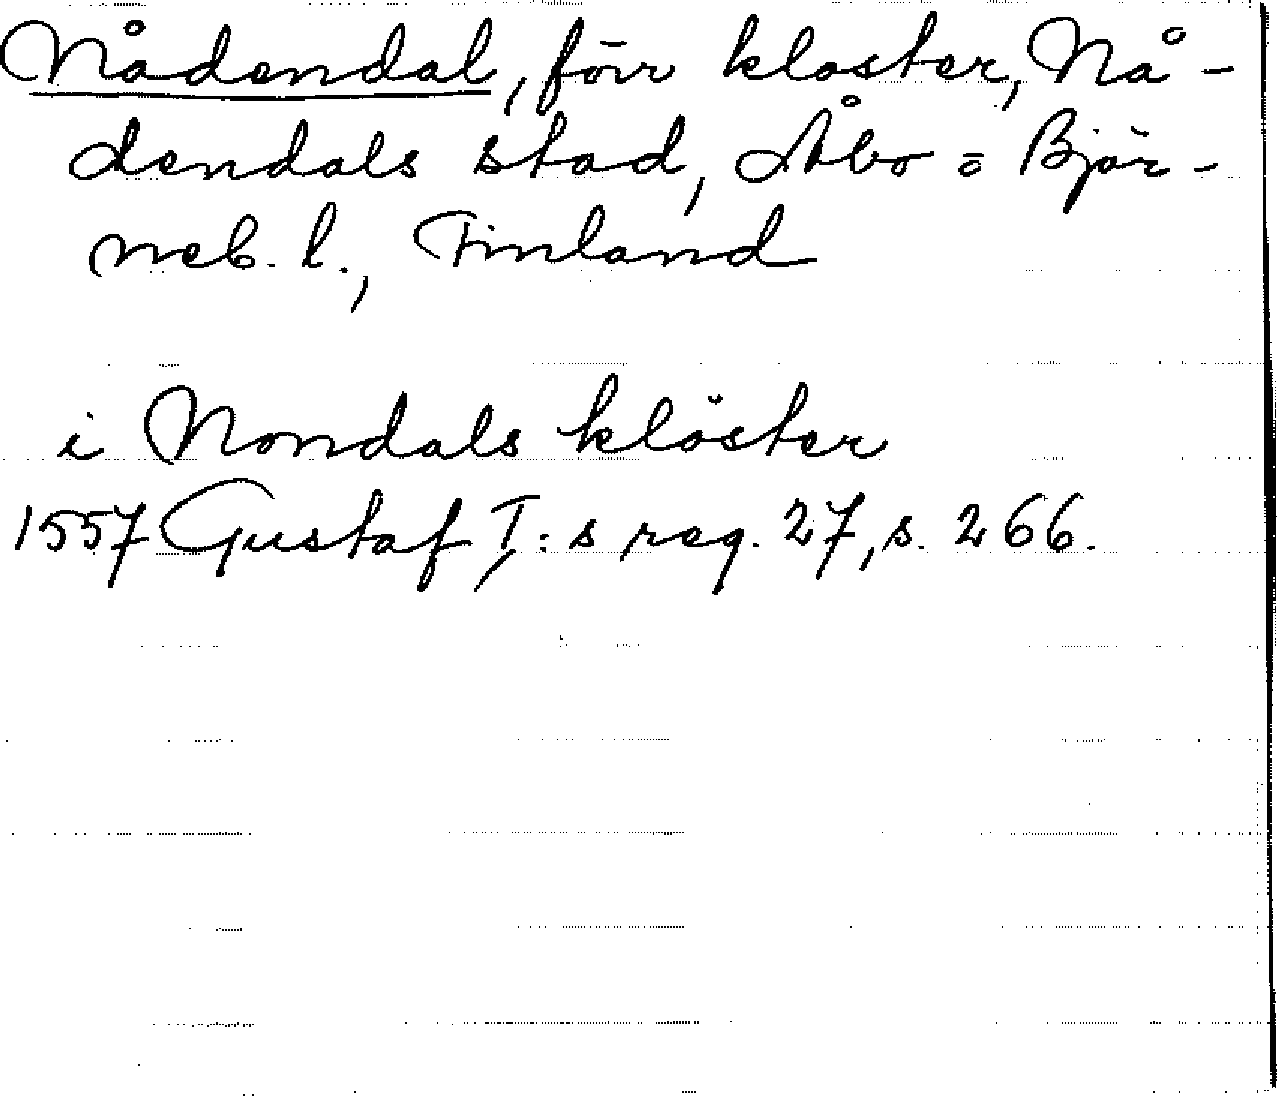 Nådendal, förr kloster, Nå-
dendals stad, Åbo = Björ-
neb. l., Finland
i Nondals klöster
1557 Gustaf I:s reg. 27, s. 266.